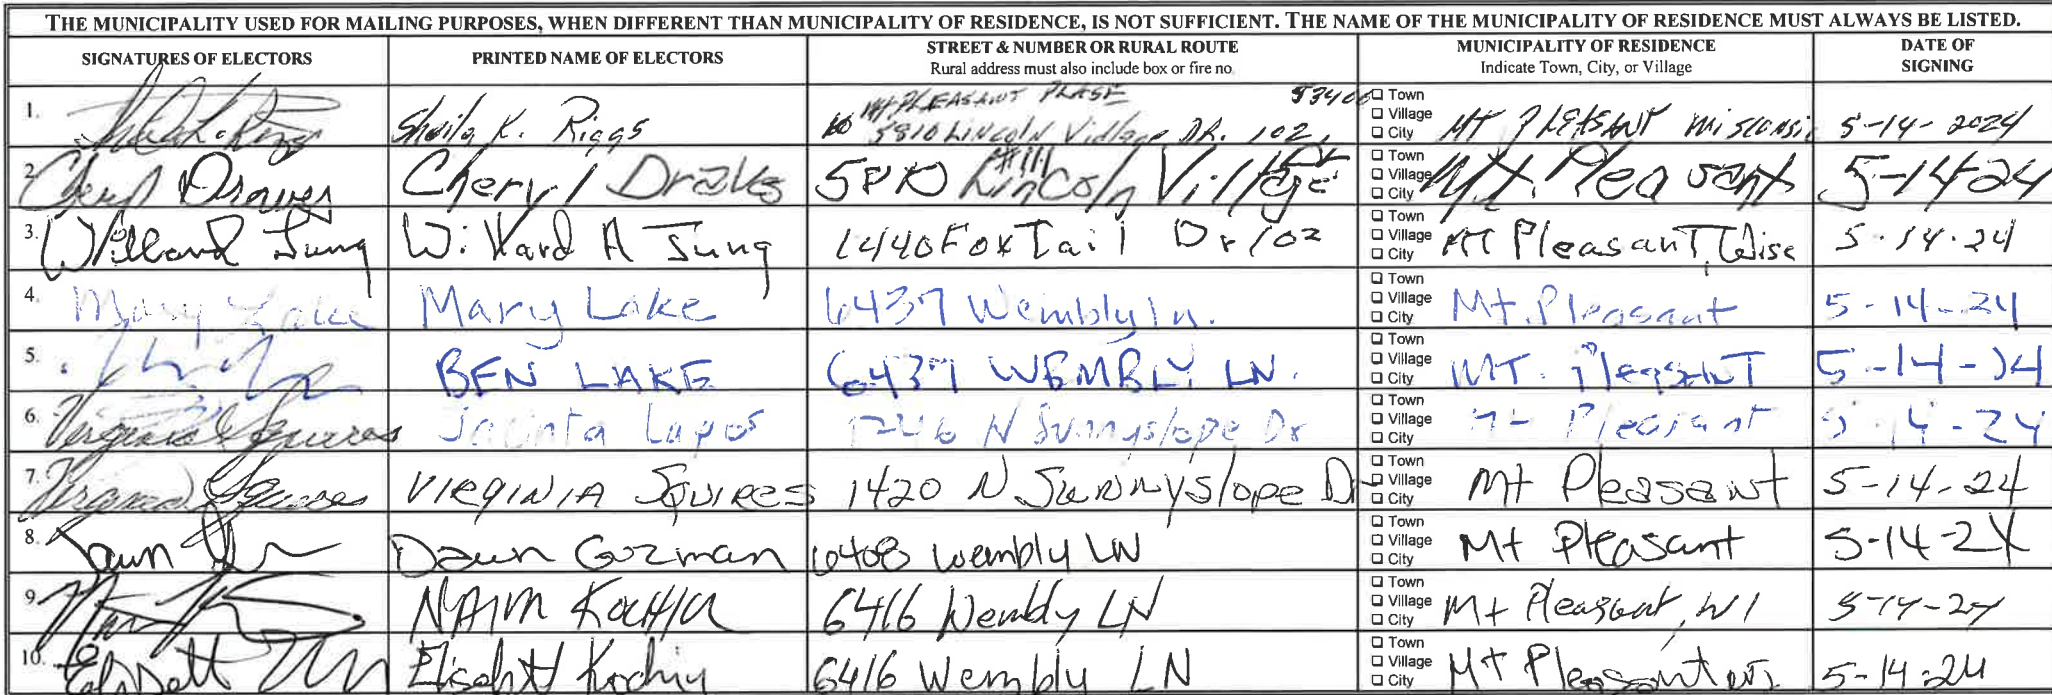 THE MUNICIPALITY USED FOR MAILING PURPOSES, WHEN DIFFERENT THAN MUNICIPALITY OF RESIDENCE, IS NOT SUFFICIENT. THE NAME OF THE MUNICIPALITY OF RESIDENCE MUST ALWAYS BE LISTED.
SIGNATURES OF ELECTORS PRINTED NAME OF ELECTORS STREET & NUMBER OR RURAL ROUTE MUNICIPALITY OF RESIDENCE DATE OF SIGNING
Rural address must also include box or fire no. Indicate Town, City, or Village
1. Sheila K. Riggs MT PLEASANT PLASE 53406 5810 Lincoln Village DR. 102, Town Village City MT PLEASANT Wisconsin 5-14-2024
2. Cheryl Draves Cheryl Draves 5810 #111 Lincoln Village Town Village City Mt. Pleasant 5-14-24
3. Willard Jung Willard A Jung 1440 Fox Tail Dr 102 Town Village City MT Pleasant, Wisc 5-14-24
4. Mary Lake Mary Lake 6437 Wembly Ln. Town Village City Mt. Pleasant 5-14-24
5. BEN LAKE 6437 WEMBLY LN. Town Village City MT. PleasanT 5-14-24
6. Virginia Squires Jacinta Lapos N Sunnyslope Dr Town Village City Mt Pleasant 5-14-24
7. Virginia Squires VIRGINIA SQUIRES 1420 N Sunnyslope Dr Town Village City Mt Pleasant 5-14-24
8. Dawn Dawn Guzman 6408 Wembly LN Town Village City Mt Pleasant 5-14-24
9. 6416 Wembly LN Town Village City Mt Pleasant, WI 5-14-24
10. Elisabett 6416 Wembly LN Town Village City Mt Pleasant WI. 5-14-24